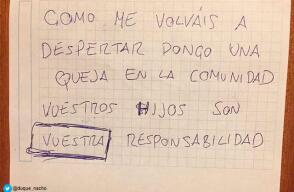 COMO ME VOLVÁIS A
DESPERTAR PONGO UNA
QUEJA EN LA COMUNIDAD
VUESTROS HIJOS SON
VUESTRA RESPONSABILIDAD
@duque_nacho